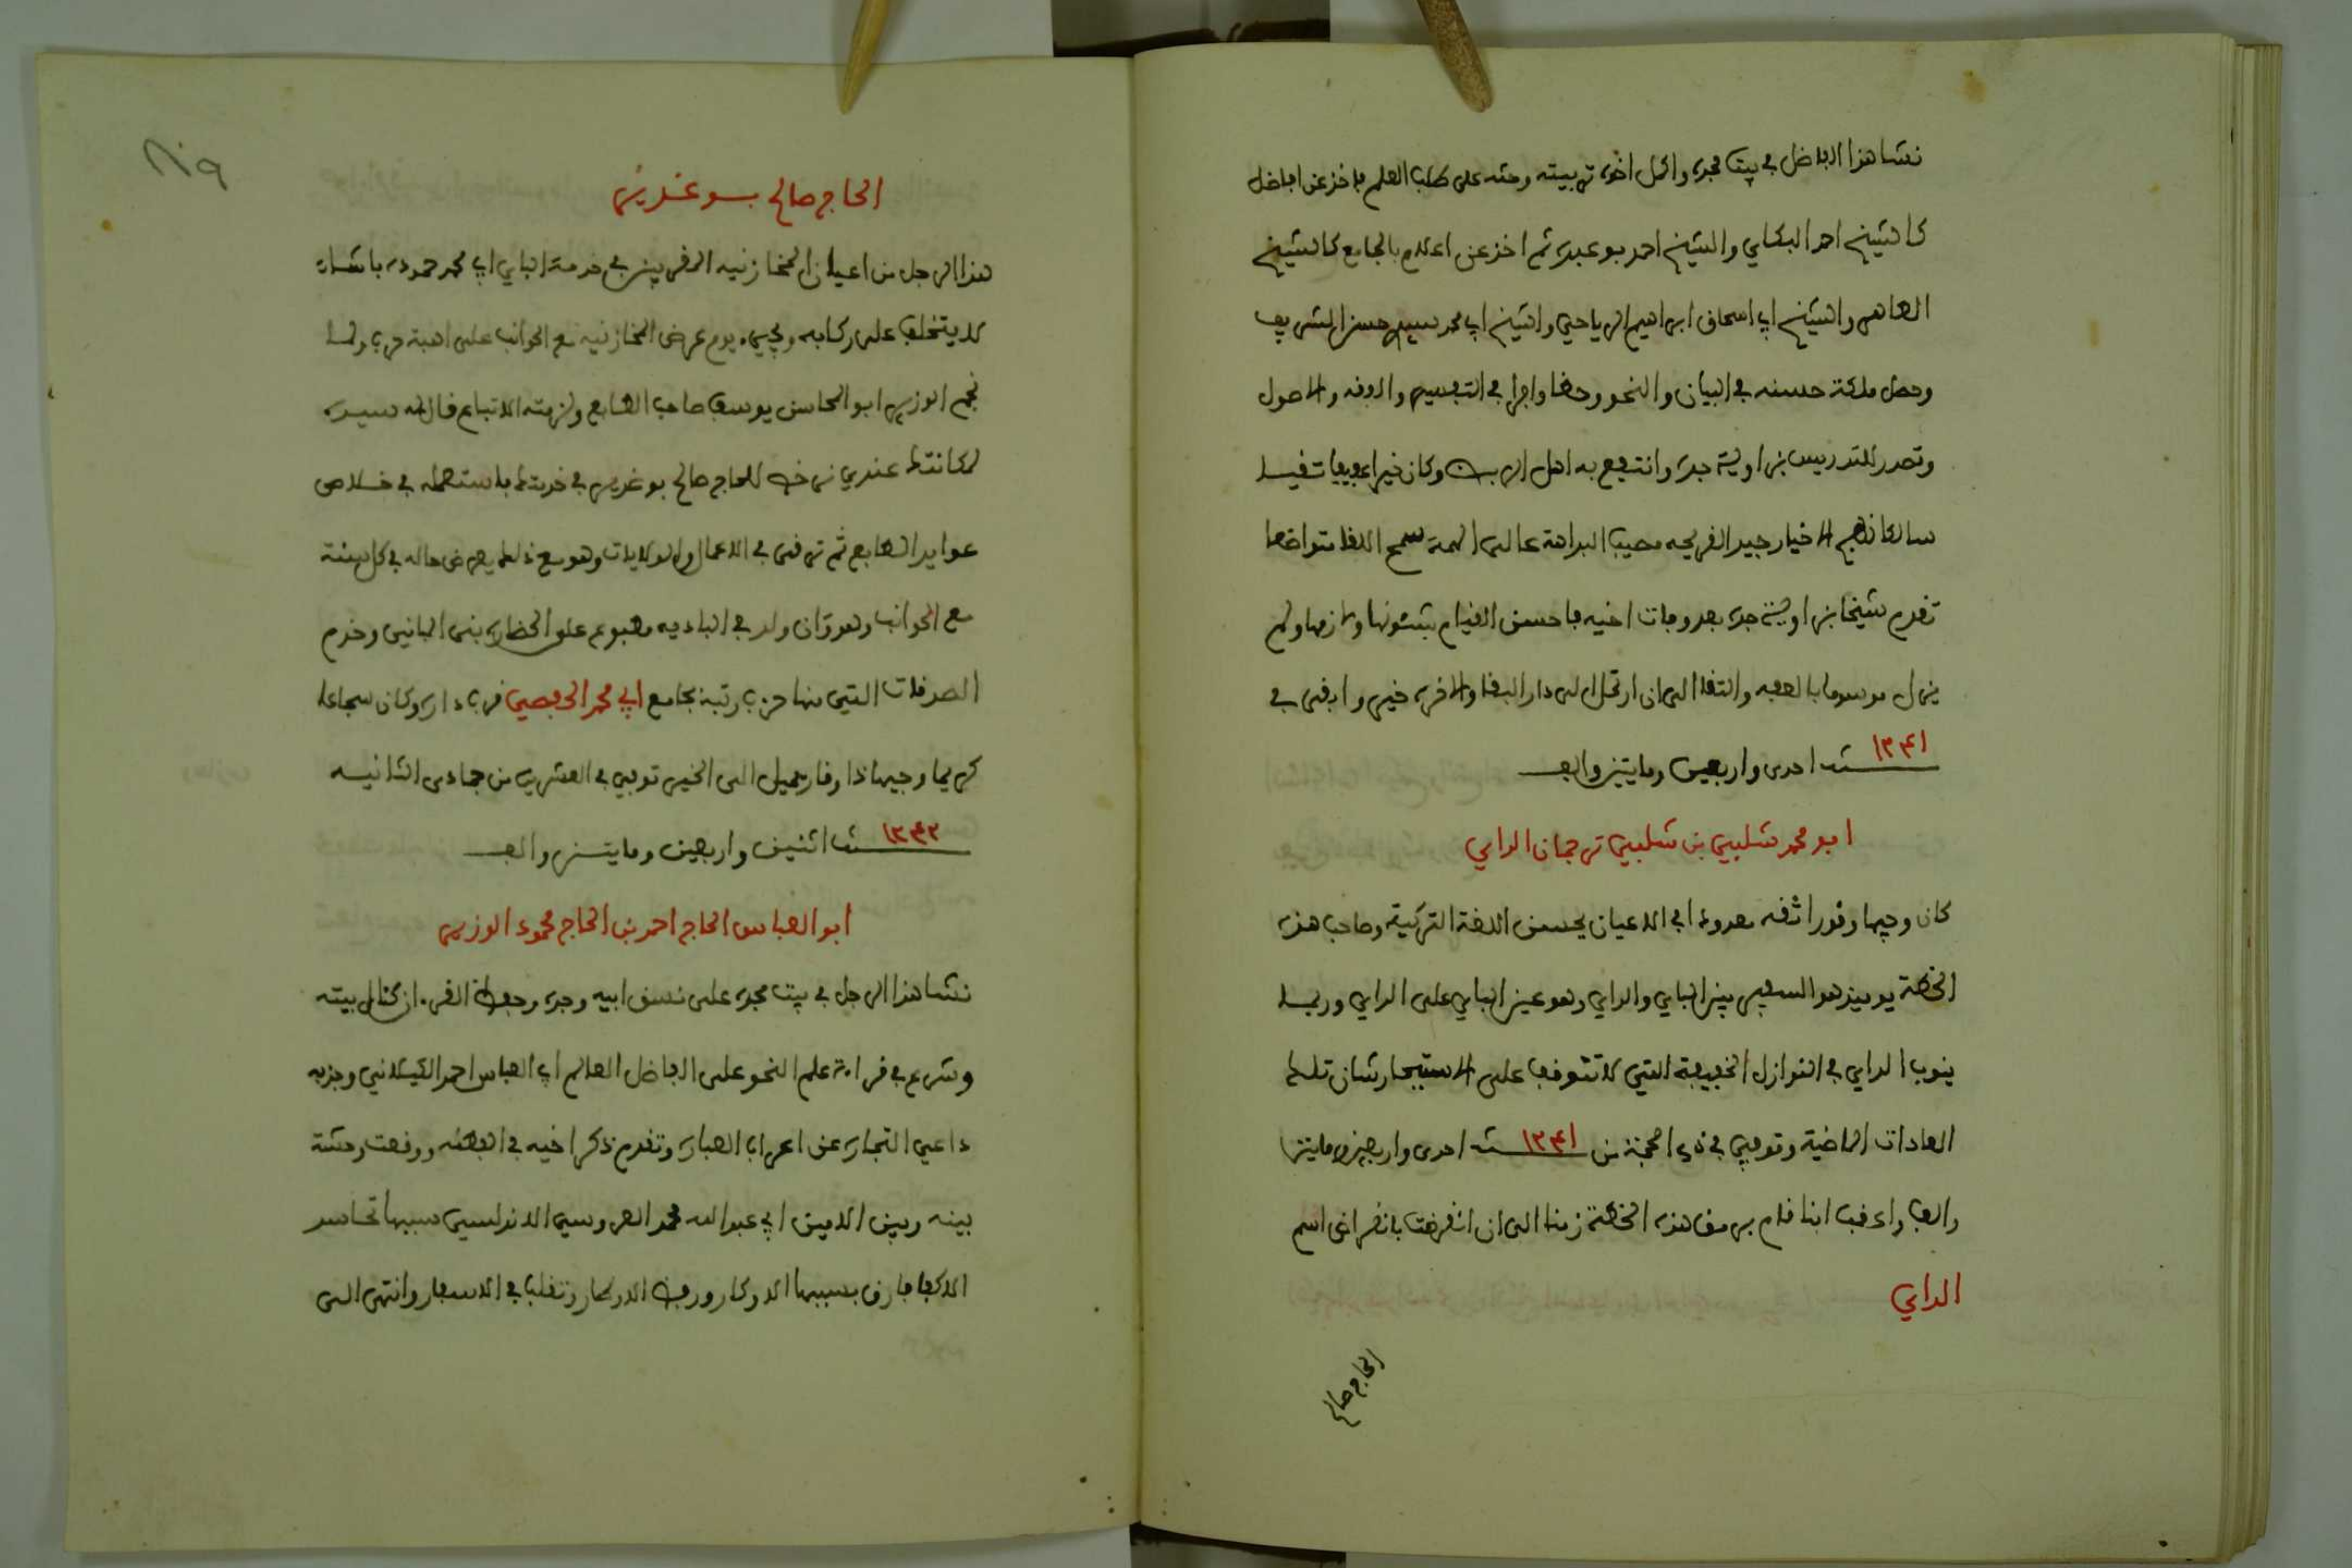 نشا هذا الفاضل في بيت مجده واكمل اخوه تربيته وحثه على طلب العلم فاخذ عن افاضل
كالشيخ احمد البكاي والشيخ احمد بوعبدة ثم اخذ عن اعلام بالجامع كالشيخ
الطاهر والشيخ ابي اسحاق ابراهيم الرياحي والشيخ ابي محمد سيدي حسن الشريف
وحصل ملكة حسنه في البيان والنحو وحظا وافرا في التفسير والفقه والاصول
وتصدر للتدريس بزاوية جده وانتفع به اهل الربض وكان خيرا عفيفا تقيا
سالكا نهج الاخيار جيد القريحه مصيب البداهة عالي الهمة سمح اللقا متواضعا
تقدم شيخا بزاوية جده بعد وفات اخيه فاحسن القيام بشئونها ولازمها ولم
يزل موسوما بالعفه والتقا الى ان ارتحل الى دار البقا والاخرة خير وابقى في
١٢٤١ سنة احدى واربعين ومايتين والف
ابو محمد شلبي بن شلبي ترجمان الداي
كان وجيها وقورا ثقه معدودا في الاعيان يحسن اللغة التركية وصاحب هذه
الخطة يوميذ هو السفير بين الباي والداي وهو عين الباي على الداي وربما
ينوب الداي في النوازل الخفيفة التي لا تتوقف على الاستفسار شان تلك
العادات الماضية وتوفي في ذي الحجة من ١٢٤١ سنة احدى واربعين ومايتين
والف واعقب ابنا قام برسم هذه الخطة زمنا الى ان انقرضت بانقراض اسم
الداي
الحاج صالح
٨١٩
الحاج صالح بوغديري
هذا الرجل من اعيان المخازنيه المقربين في خدمة الباي ابي محمد حموده باشا
لا يتخلف على ركابه ويجيء يوم عرض المخازنيه مع الحوانب على اهبة حرب ولما
نجم الوزير ابو المحاسن يوسف صاحب الطابع ولزمته الاتباع قال له سيده
لمكانتك عندي نرخص للحاج صالح بوغديري في خدمتك فاستعمله في خلاص
عوايد الطابع ثم ترقى في الاعمال والولايات وهو مع ذلك يعرض حاله في كل سنة
مع الحوانب وهو وان ولد في الباديه مطبوع على الحضارة بنى المباني وخدم
الصدقات التي منها حزب رتبه بجامع ابي محمد الحفصي قرب داره وكان شجاعا
كريما وجيها ذا وقار يميل الى الخير توفي في العشرين من جمادى الثانيه
١٢٤٢ سنة اثنين واربعين ومايتين والف
ابو العباس الحاج احمد بن الحاج محمود الوزير
نشا هذا الرجل في بيت مجده على نسق ابيه وجده وحفظ القرءان كامل بيته
وشرع في قراءة علم النحو على الفاضل العالم ابي العباس احمد الكيلاني وجذبه
داعي التجارة عن اعراب العبارة وتقدم ذكر اخيه في ووقعت وحشة
بينه وبين الامين ابي عبد الله محمد العروسي الاندلسي سببها تحاسد
الاكفا فارق بسببها الاوكار ورفض الاوطار وتقلب في الاسفار وانتهى الى